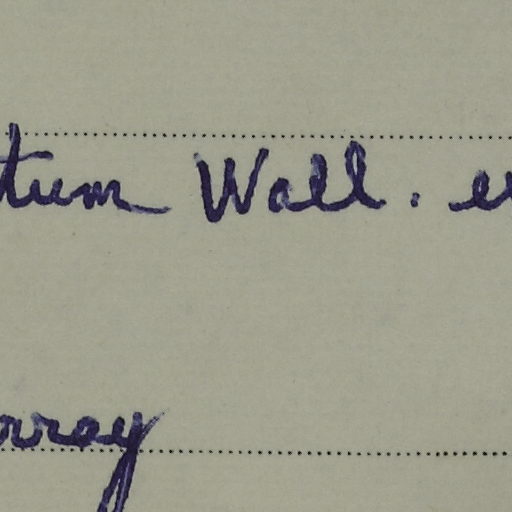 tum Wall. e
rray